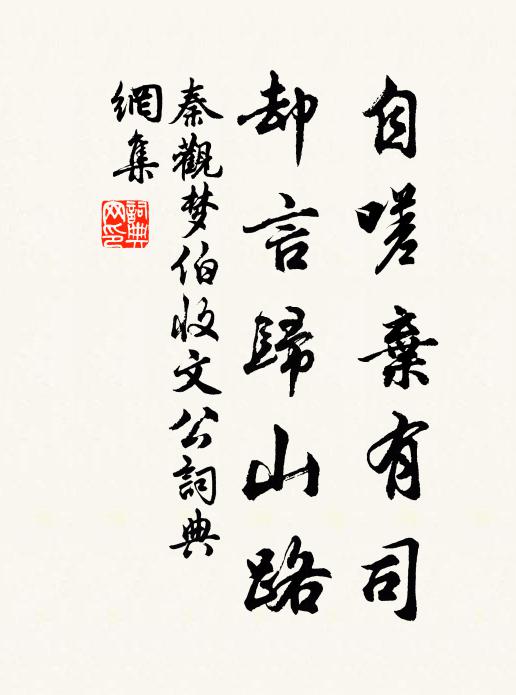 自嗟棄有司
却言歸山路
秦觀梦伯收文公詞典
網集
詞典网印